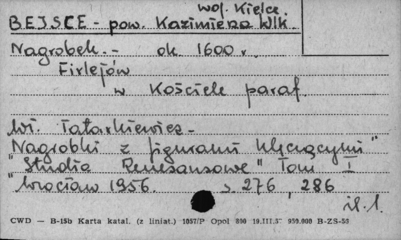 woj. Kielce
BEJSCE - pow. Kazimierza Wlk.
Nagrobek. - ok. 1600 r.
Firlejów
w Kościele paraf.
Wł. Tatarkiewicz -
Nagrobki z figurami klęczącymi"
"Studia Renesansowe" Tom I
Wrocław 1956. s. 276, 286
il. 1.
CWD — B-15b Karta katal. (z liniat.) 1057/P Opol B-ZS-50